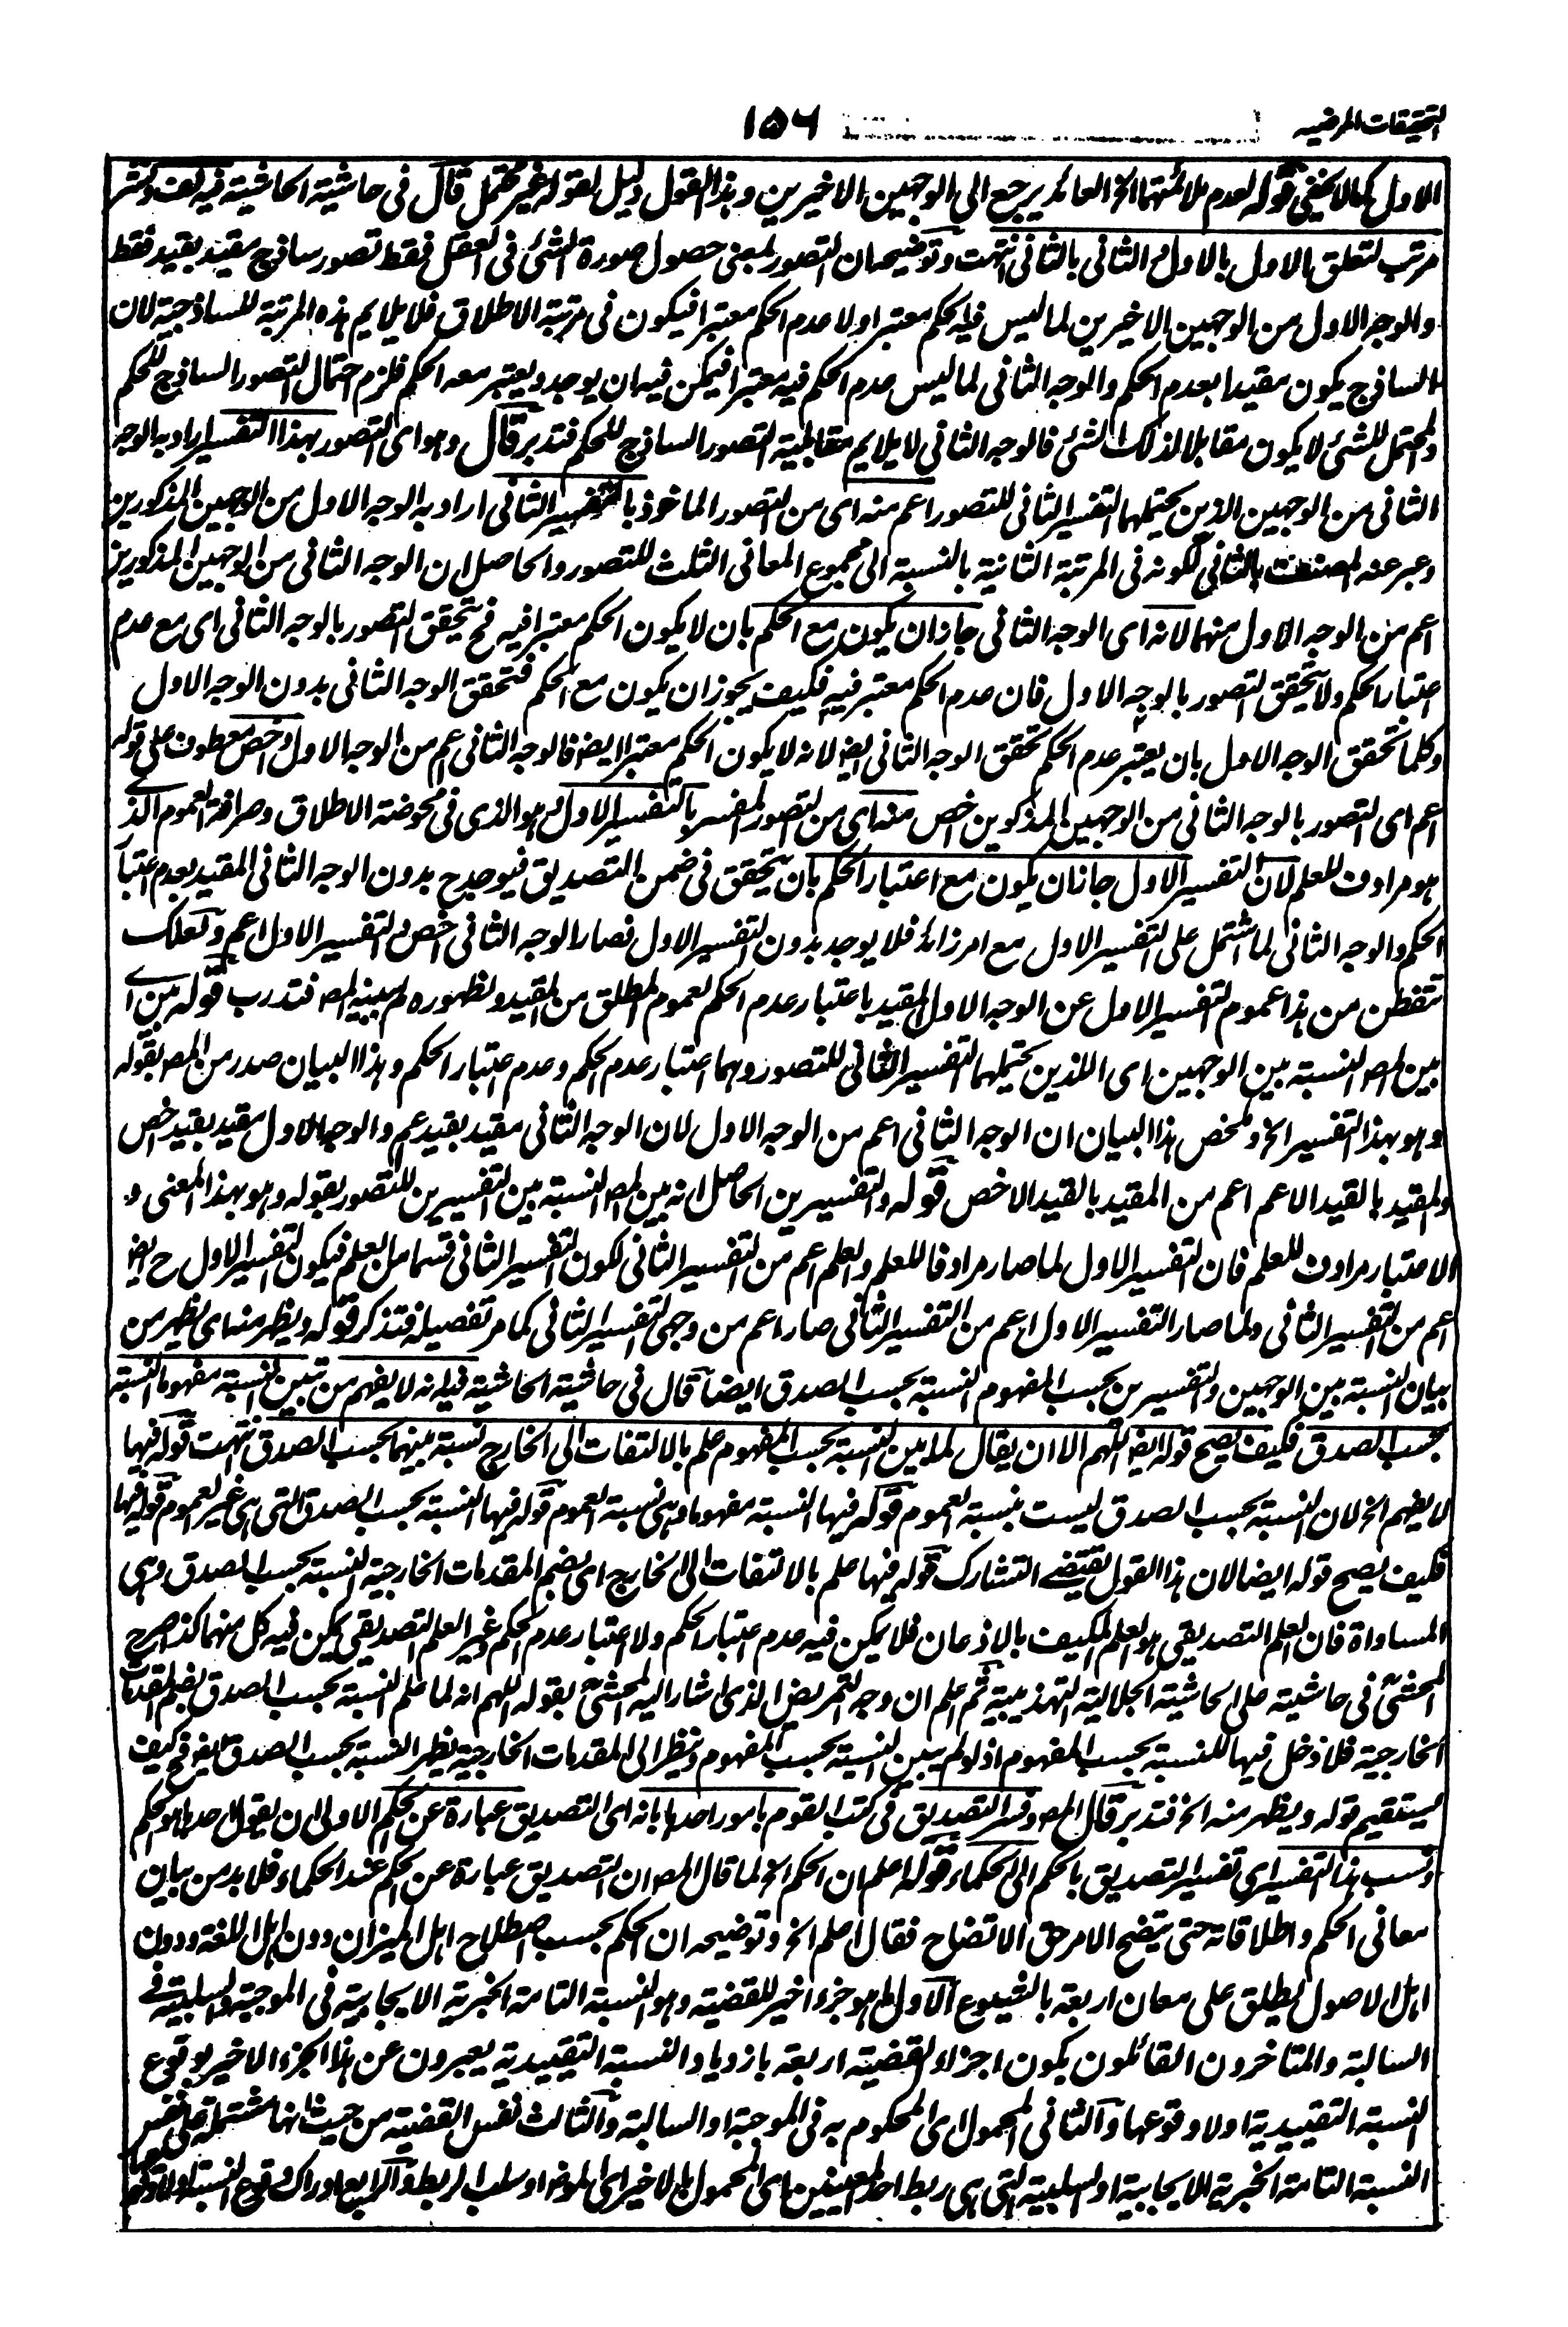 التحقيقات المرضيه ١٥٦
الاول كما لا يخفى قوله لعدم ملائمتهما الخ العائد يرجع الى الوجهين الاخيرين وهذا القول دليل لقوله غير محتمل قال فى حاشية الحاشية فيه لف ونشر
مرتب لتعلق الاول بالاول والثانى بالثانى انتهت وتوضيحه ان التصور بمعنى حصول صورة الشئ فى العقل فقط تصور ساذج مقيد بقيد فقط
والوجه الاول من الوجهين الاخيرين لما ليس فيه حكم معتبر او لا عدم الحكم معتبرا فيكون فى مرتبة الاطلاق فلا يلايم هذه المرتبة للساذجية لان
الساذج يكون مقيدا بعدم الحكم والوجه الثانى لما ليس عدم الحكم فيه معتبرا فيمكن فيه ان يوجد ويعتبر معه الحكم فلزم احتمال التصور الساذج للحكم
والمحتمل للشئ لا يكون مقابلا لذلك الشئ فالوجه الثانى لا يلايم مقابلية التصور الساذج للحكم فتدبر قال وهو اى التصور بهذا التفسير اراد به الوجه
الثانى من الوجهين الذين يحتملهما التفسير الثانى للتصور اعم منه اى من التصور الماخوذ بالتفسير الثانى اراد به الوجه الاول من الوجهين المذكورين
وعبر عنه المصنف بالثانى لكونه فى المرتبة الثانية بالنسبة الى مجموع المعانى الثلث للتصور والحاصل ان الوجه الثانى من الوجهين المذكورين
اعم من الوجه الاول منهما لانه اى الوجه الثانى جاز ان يكون مع الحكم بان لا يكون الحكم معتبرا فيه فح تحقق التصور بالوجه الثانى اى مع عدم
اعتبار الحكم ولا يتحقق التصور بالوجه الاول فان عدم الحكم معتبر فيه فكيف يجوز ان يكون مع الحكم فتحقق الوجه الثانى بدون الوجه الاول
وكلما تحقق الوجه الاول بان يعتبر عدم الحكم تحقق الوجه الثانى ايضا لانه لا يكون الحكم معتبرا ايضا فالوجه الثانى اعم من الوجه الاول واخص معطوف على قوله
اعم اى التصور بالوجه الثانى من الوجهين المذكورين اخص منه اى من التصور المفسر بالتفسير الاول وهو الذى فى محوضة الاطلاق وصرافة العموم الذى
هو مرادف للعلم لان التفسير الاول جاز ان يكون مع اعتبار الحكم بان يتحقق فى ضمن التصديق فيوجد ح بدون الوجه الثانى المقيد بعدم اعتبار
الحكم والوجه الثانى لما اشتمل على التفسير الاول مع امر زائد فلا يوجد بدون التفسير الاول فصار الوجه الثانى اخص والتفسير الاول اعم ولعلك
تتفطن من هذا عموم التفسير الاول عن الوجه الاول المقيد باعتبار عدم الحكم لعموم المطلق من المقيد ولظهوره لم يبينه المص فتدرب قوله بين اى
بين المص النسبة بين الوجهين اى اللذين يحتملهما التفسير الثانى للتصور وهما اعتبار عدم الحكم وعدم اعتبار الحكم وهذا البيان صدر من المص بقوله
وهو بهذا التفسير الخ وملخص هذا البيان ان الوجه الثانى اعم من الوجه الاول لان الوجه الثانى مقيد بقيد اعم والوجه الاول مقيد بقيد اخص
والمقيد بالقيد الاعم اعم من المقيد بالقيد الاخص قوله والتفسيرين الحاصل انه بين المص النسبة بين التفسيرين للتصور بقوله وهو بهذا المعنى و
الاعتبار مرادف للعلم فان التفسير الاول لما صار مرادفا للعلم والعلم اعم من التفسير الثانى لكون التفسير الثانى قسما من العلم فيكون التفسير الاول ح ايضا
اعم من التفسير الثانى ولما صار التفسير الاول اعم من التفسير الثانى صار اعم من وجهى التفسير الثانى كما مر تفصيله فتذكر قوله ويظهر منه اى يظهر من
بيان النسبة بين الوجهين والتفسيرين بحسب المفهوم النسبة بحسب الصدق ايضا قال فى حاشية الحاشية فيه انه لا يفهم من تبيين النسبة مفهوما النسبة
بحسب الصدق فكيف يصح قوله ايضا اللهم الا ان يقال لما بين النسبة بحسب المفهوم علم بالالتفات الى الخارج نسبة بينهما بحسب الصدق انتهت قوله فيها
لا يفهم الخ لان النسبة بحسب الصدق ليست بنسبة العموم قوله فيها النسبة مفهوما وهى نسبة العموم قوله فيها النسبة بحسب الصدق التى هى غير العموم قوله فيها
فكيف يصح قوله ايضا لان هذا القول يقتضى التشارك قوله فيها علم بالالتفات الى الخارج اى بضم المقدمات الخارجية النسبة بحسب الصدق وهى
المساواة فان العلم التصديقى هو العلم المكيف بالاذعان فلا يمكن فيه عدم اعتبار الحكم ولا اعتبار عدم الحكم وغير العلم التصديقى يمكن فيه كل منهما كذا صرح
المحشى فى حاشيته على الحاشية الجلالية التهذيبية ثم اعلم ان وجه التمريض الذى اشار اليه المحشى بقوله اللهم انه لما علم النسبة بحسب الصدق بضم المقدمات
الخارجية فلا دخل فيها للنسبة بحسب المفهوم اذ لو لم يبين النسبة بحسب المفهوم وينظر الى المقدمات الخارجية يظهر النسبة بحسب الصدق ايضا فح كيف
يستقيم قوله ويظهر منه الخ فتدبر قال المص وفسر التصديق فى كتب القوم بامور احدها بانه اى التصديق عبارة عن الحكم الاولى ان يقول احدها هو الحكم
ونسب هذا التفسير اى تفسير التصديق بالحكم الى الحكماء قوله اعلم ان الحكم الخ لما قال المص ان التصديق عبارة عن الحكم عند الحكماء فلا بد من بيان
معانى الحكم واطلاقاته حتى يتضح الامر حق الاتضاح فقال اعلم الخ وتوضيحه ان الحكم بحسب اصطلاح اهل الميزان دون اهل اللغة ودون
اهل الاصول يطلق على معان اربعة بالشيوع الاول ما هو جزء اخير للقضية وهو النسبة التامة الخبرية الايجابية فى الموجبة والسلبية فى
السالبة والمتاخرون القائلون بكون اجزاء القضية اربعة بازدياد النسبة التقييدية يعبرون عن هذا الجزء الاخير بوقوع
النسبة التقييدية اولا وقوعها والثانى المحمول اى المحكوم به فى الموجبة او السالبة والثالث نفس القضية من حيث انها مشتملة على نفس
النسبة التامة الخبرية الايجابية او السلبية التى هى ربط احد المعنيين اى المحمول بالاخير اى الموضوع او سلب الربط والرابع ادراك وقوع النسبة اولا وقوعها